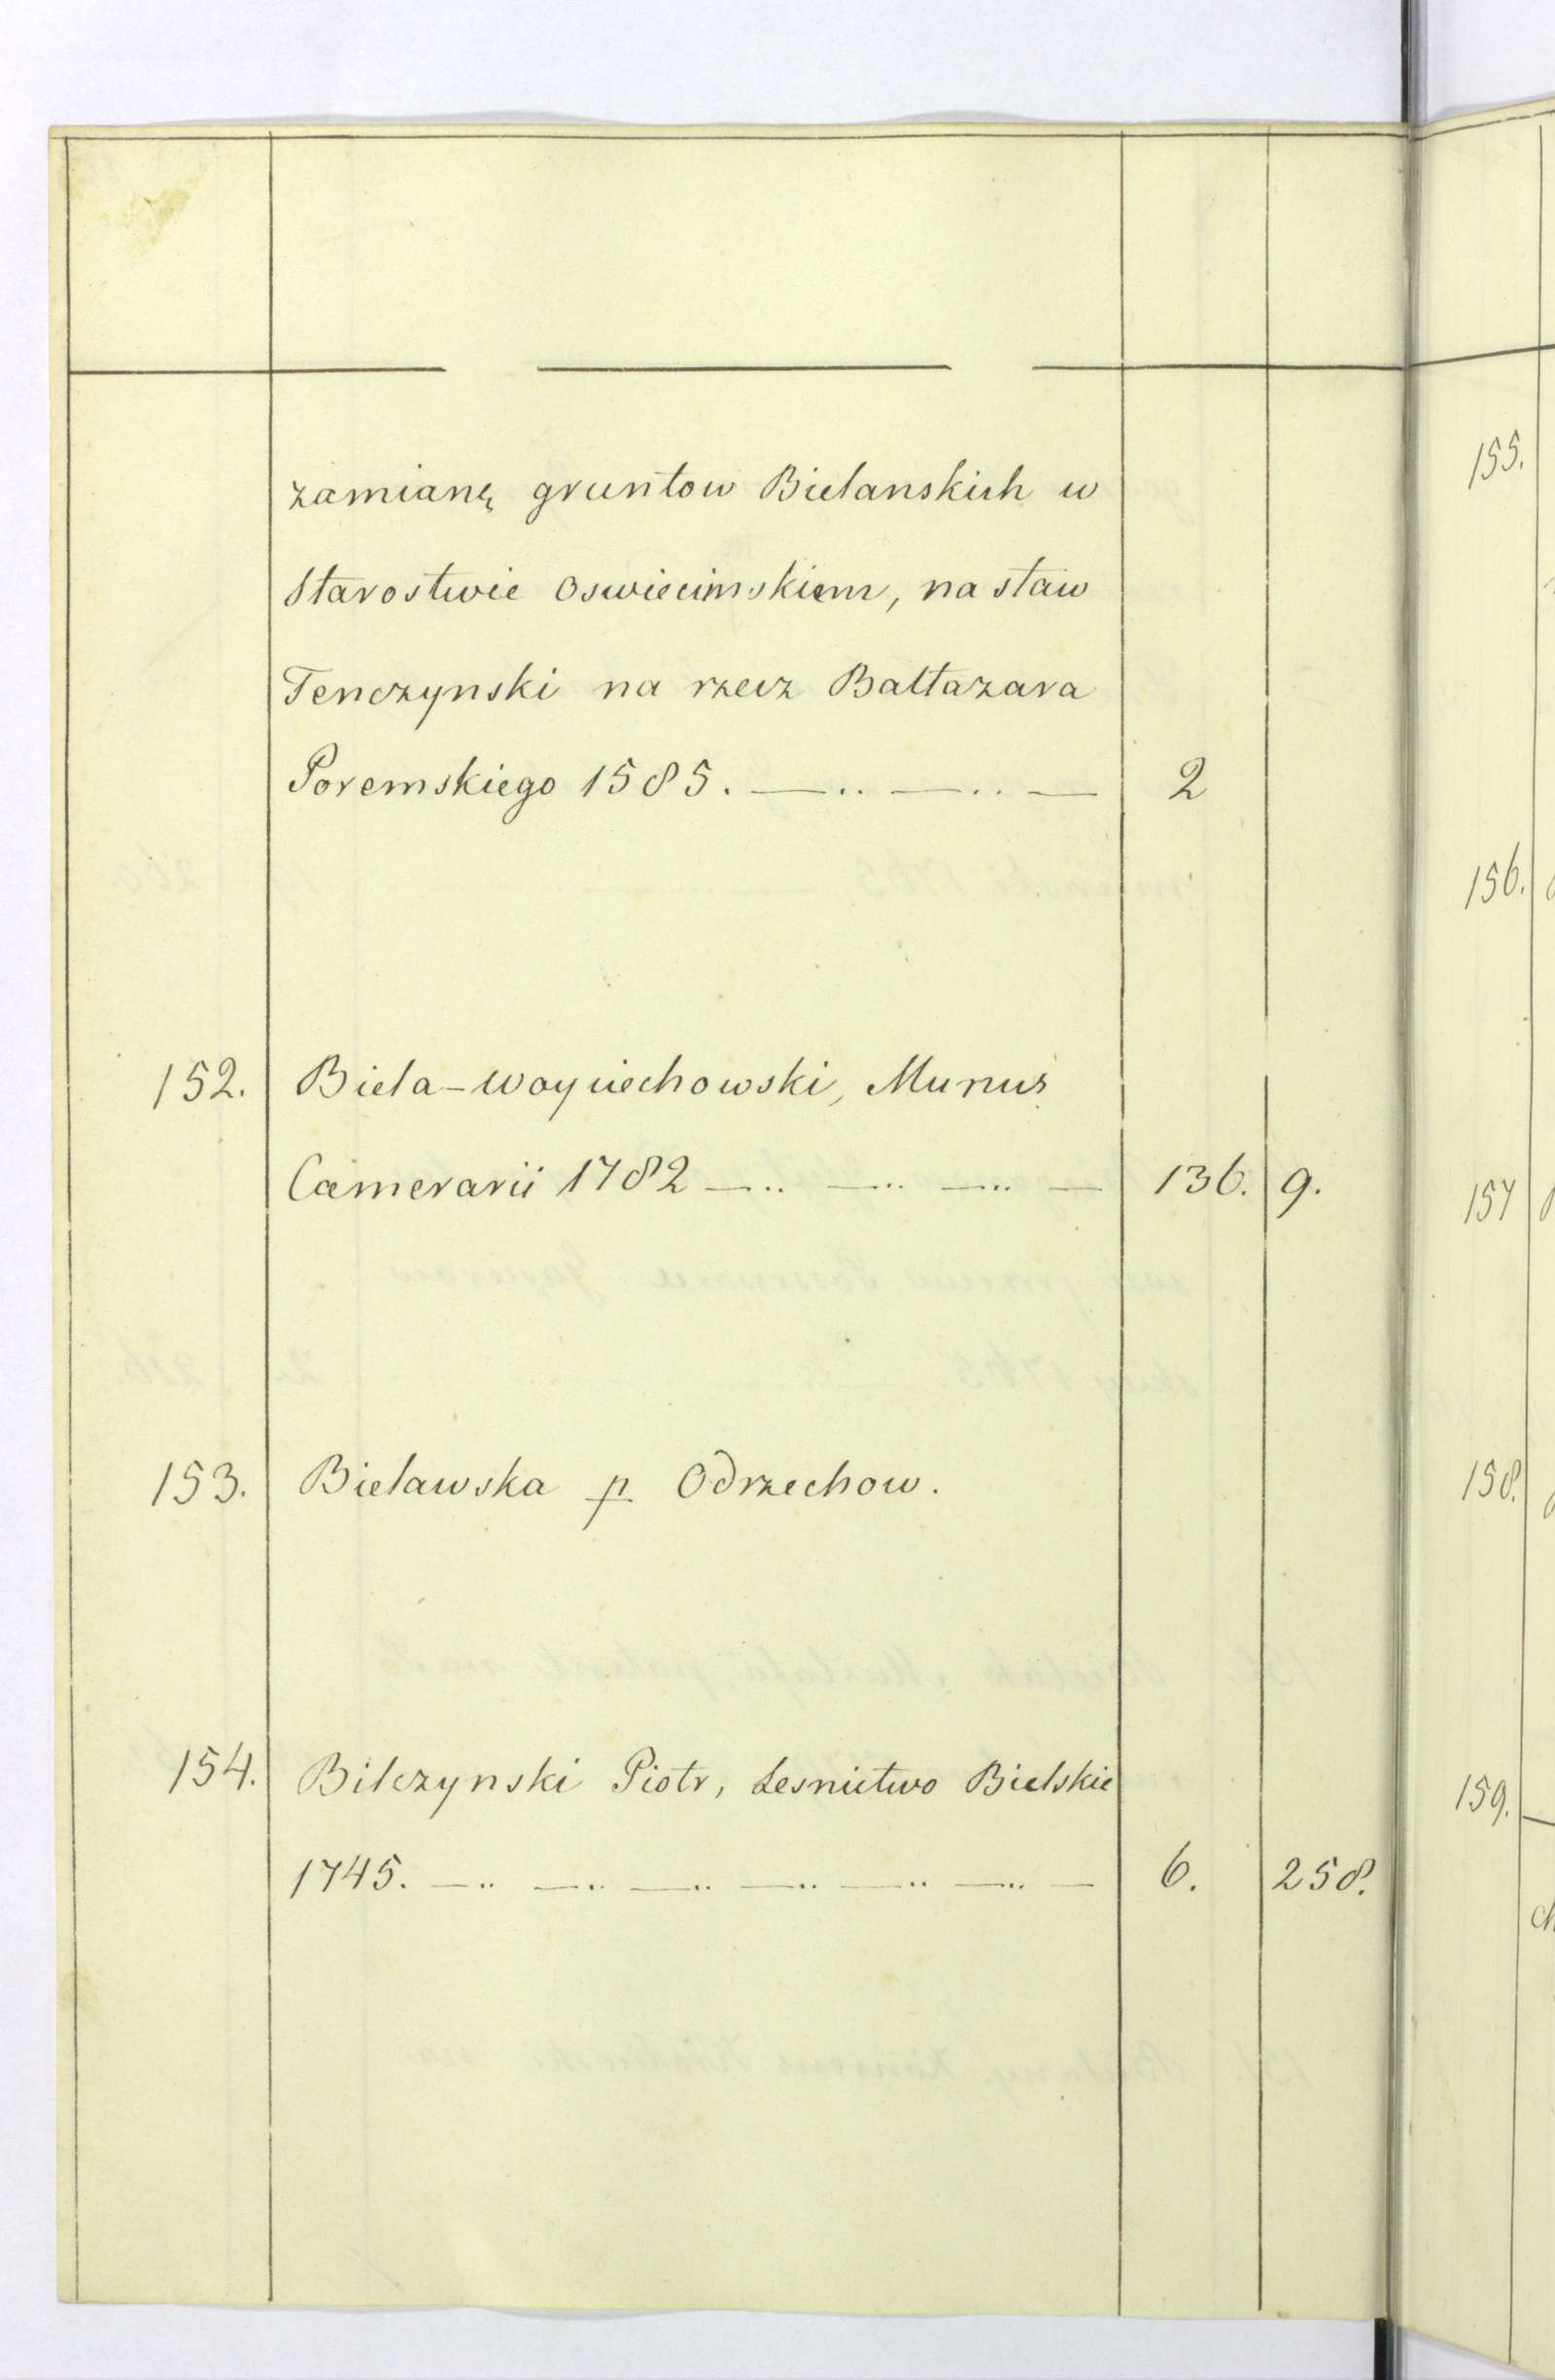 zamianę gruntow Bielanskich w
Starostwie Oswiecimskiem, na staw
Tenczynski na rzecz Baltazara
Poremskiego 1585. — .. — .. — 2
152. Biela-Woyciechowski, Munus
Camerarii 1782 — .. — .. — .. — 136. 9.
153. Bielawska p. Odrzechow.
154. Bilczynski Piotr, Lesnictwo Bielskie
1745. — .. — .. — .. — .. — .. — .. — 6. 258.
155.
156.
157
158.
159.